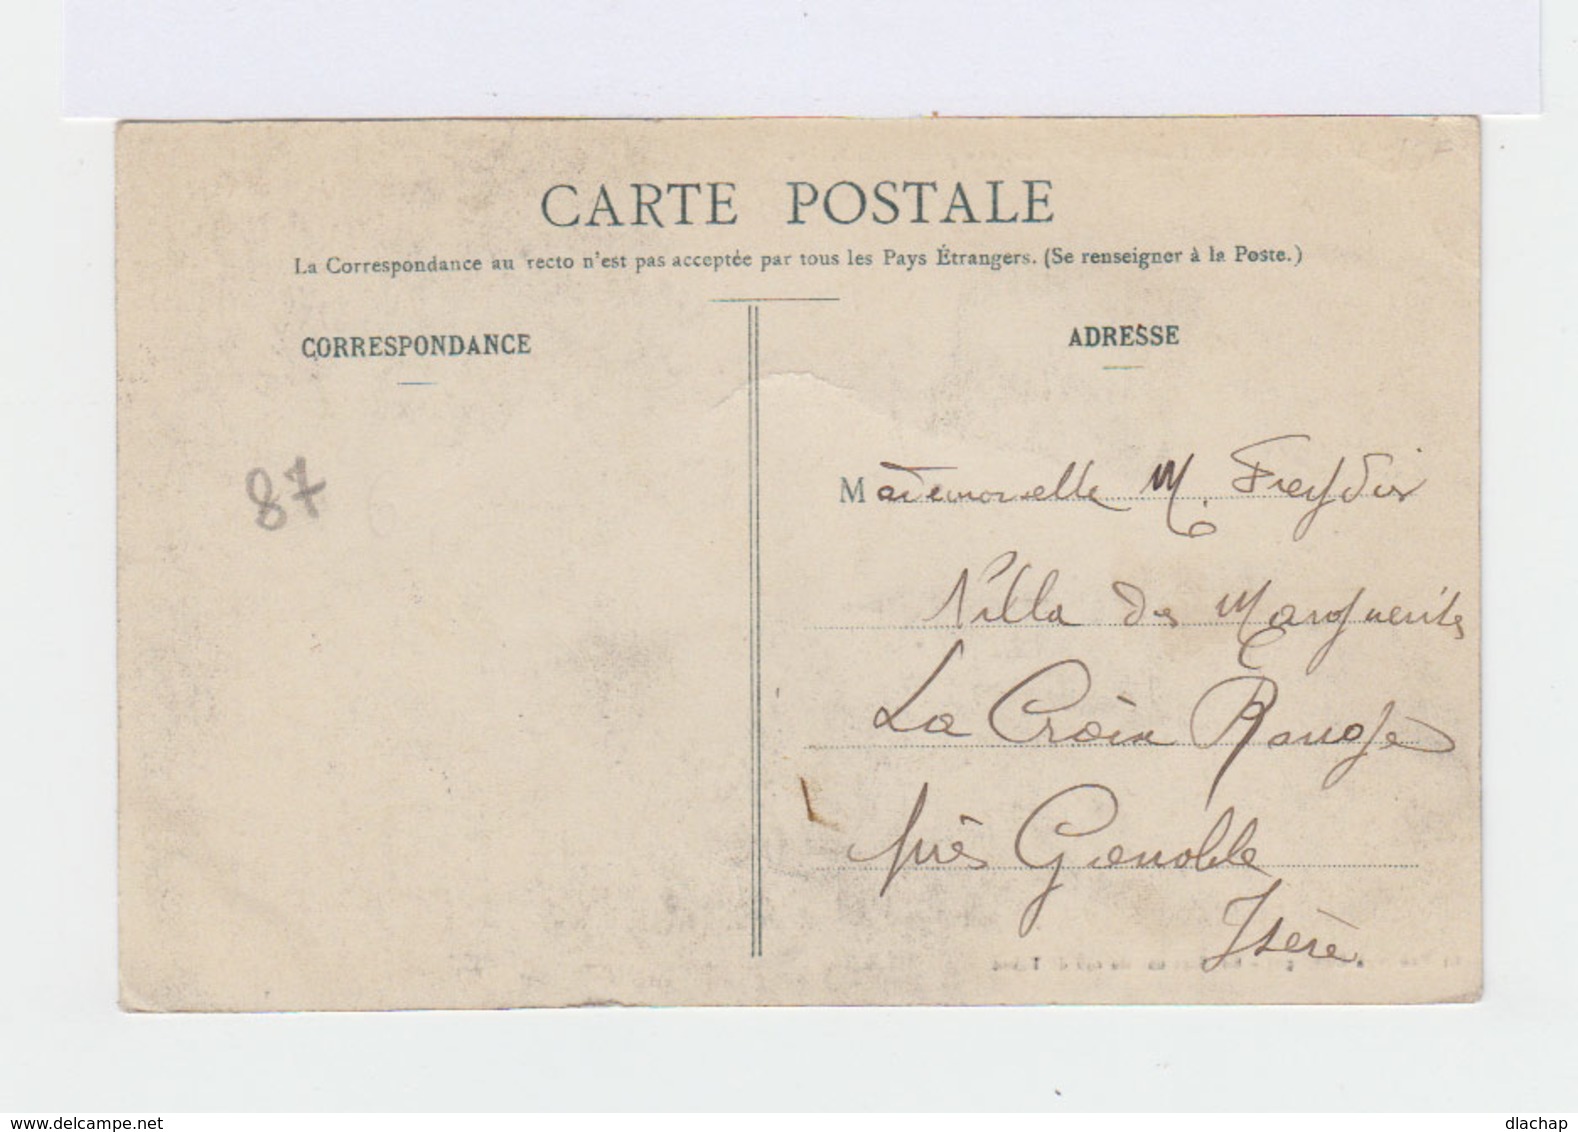 CARTE POSTALE
La Correspondance au recto n'est pas acceptée par tous les Pays Étrangers. (Se renseigner à la Poste.)
CORRESPONDANCE
ADRESSE
87
Mademoiselle M. Freydier
Villa des Marguerites
La Croix Rouge
près Grenoble
Isère
www.delcampe.net
dlachap